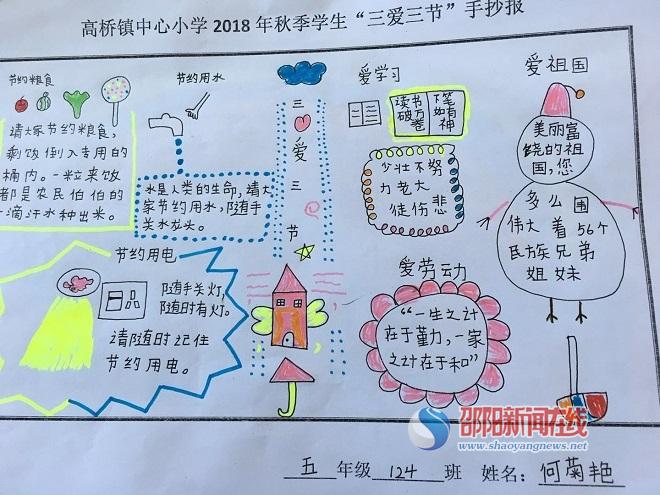 高桥镇中心小学2018年秋季学生“三爱三节”手抄报
节约粮食
请大家节约粮食，
剩饭倒入专用的
桶内。一粒米饭
都是农民伯伯的
一滴汗水种出米。
节约用水
水是人类的生命，请大
家节约用水，随手
关水龙头。
三
爱
三
节
爱学习
读书
破万
卷
下笔
如有
神
少壮不努
力老大
徒伤悲
爱祖国
美丽富
饶的祖
国，您
多么
伟大着56个
民族兄弟
姐妹
节约用电
随手关灯，
随时有灯。
请随时记住
节约用电。
爱劳动
“一生之计
在于勤力，一家
之计在于和”
邵阳新闻在线
www.shaoyangnews.net
五年级124班 姓名：何菊艳